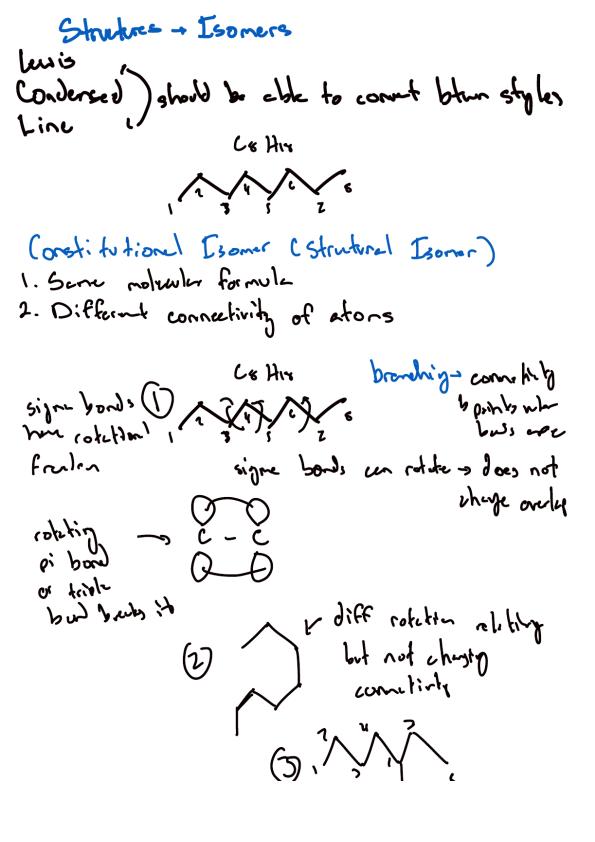 Structures → Isomers
Lewis
Condensed
Line
should be able to convert btwn styles
C8 H18
1 2 3 4 5 6 7 8
Constitutional Isomer (Strutural Isomer)
1. Same molecular formula
2. Different connectivity of atoms
C8 H18
sigma bonds
have rotational
freedom
1
1 2 3 4 5 6 7 8
branching → connectivity
↳ points where
bonds are
sigma bonds can rotate → does not
change overlap
rotating
pi bond
or triple
bond breaks it
→
C - C
2
diff rotation
but not changing
connectivity
3